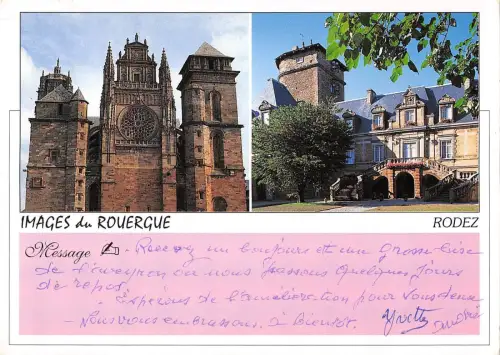 IMAGES du ROUERGUE
RODEZ
Message Recevez un bonjour et un grosse bise
de l'aveyron ou nous passons quelques jours
de repos.
Espérons de l'amélioration pour vous deux
Nous vous embrassons. à bientôt.
Yvette